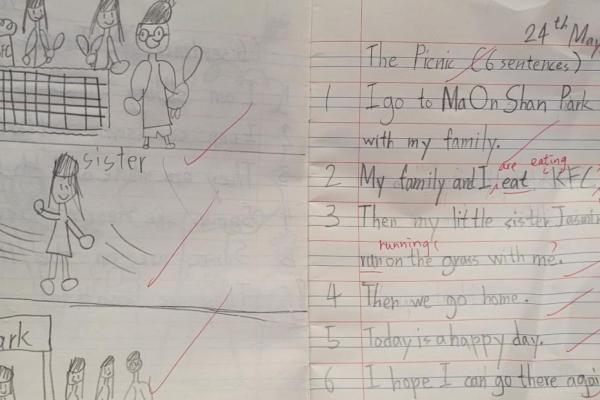 sister
ark
24th May
The Picnic (6 sentences)
1 I go to MaOn Shan Park
with my family.
are eating
2 My family and I eat KFC,
3 Then my little sister
running
run on the grass with me.
4 Then we go home.
5 Today is a happy day.
6 I hope I can go there again